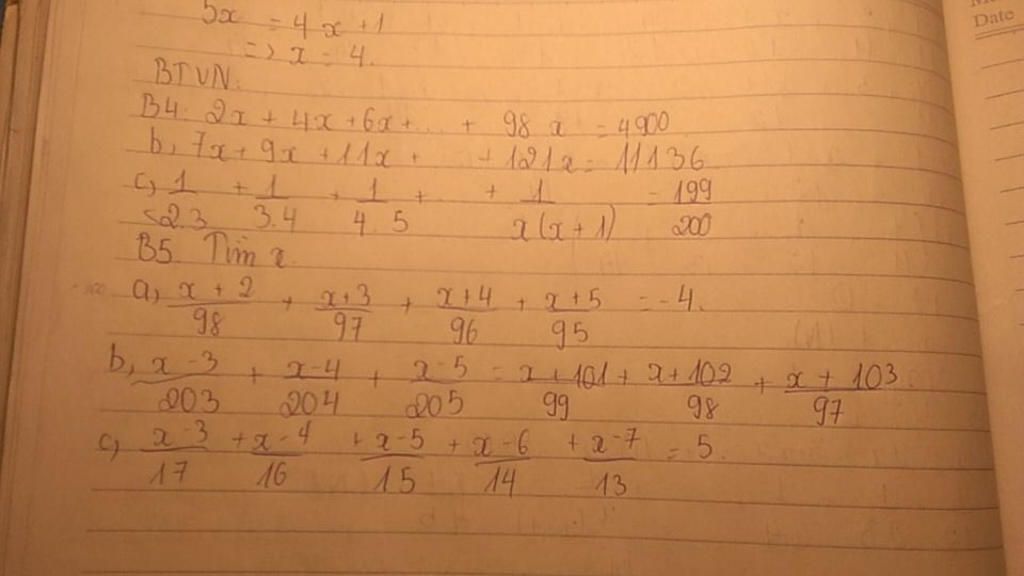 5x = 4x + 1
=> x = 4.
BTVN.
B4: 2x + 4x + 6x + ... + 98 x = 4900
b, 7x + 9x + 11x + ... + 121x = 11136
c, 1/2.3 + 1/3.4 + 1/4.5 + ... + 1/x(x+1) = 199/200
B5 Tìm x.
a, x+2/98 + x+3/97 + x+4/96 + x+5/95 = -4.
b, x-3/203 + x-4/204 + x-5/205 = x+101/99 + x+102/98 + x+103/97
c, x-3/17 + x-4/16 + x-5/15 + x-6/14 + x-7/13 = 5.
Date